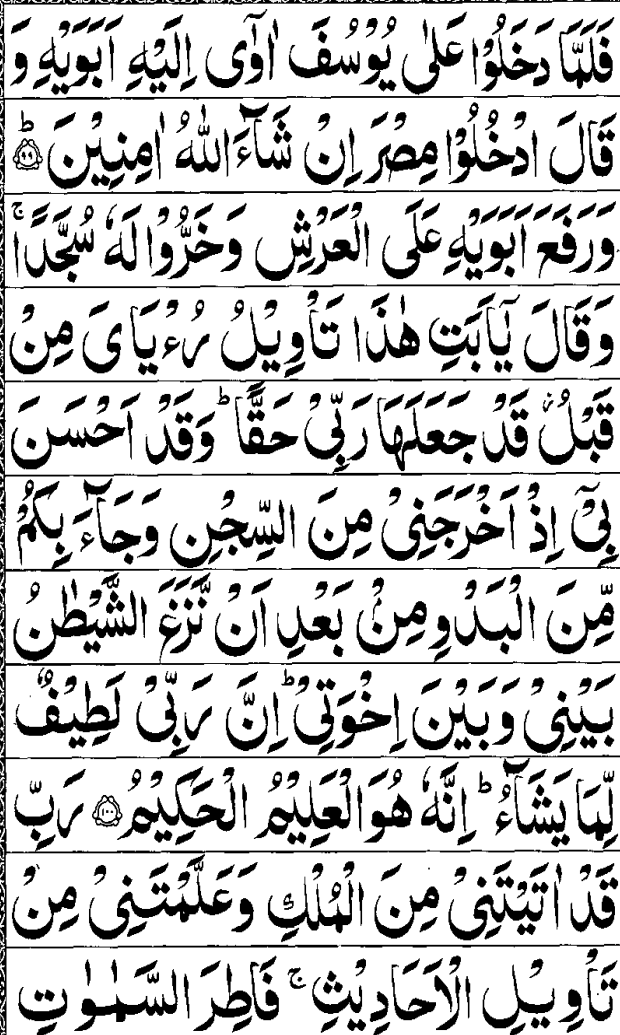 فَلَمَّا دَخَلُوْا عَلٰى يُوْسُفَ اٰوٰٓى اِلَيْهِ اَبَوَيْهِ وَ
قَالَ ادْخُلُوْا مِصْرَ اِنْ شَآءَ اللّٰهُ اٰمِنِيْنَ ؕ‏﴿۹۹﴾
وَرَفَعَ اَبَوَيْهِ عَلَى الْعَرْشِ وَخَرُّوْا لَهٗ سُجَّدًا ۚ
وَقَالَ يٰۤاَبَتِ هٰذَا تَاْوِيْلُ رُءْيَاىَ مِنْ
قَبْلُ ۫ قَدْ جَعَلَهَا رَبِّىْ حَقًّا ؕ وَقَدْ اَحْسَنَ
بِىْۤ اِذْ اَخْرَجَنِىْ مِنَ السِّجْنِ وَجَآءَ بِكُمْ
مِّنَ الْبَدْوِ مِنْۢ بَعْدِ اَنْ نَّزَغَ الشَّيْطٰنُ
بَيْنِىْ وَبَيْنَ اِخْوَتِىْ ؕ اِنَّ رَبِّىْ لَطِيْفٌ
لِّمَا يَشَآءُ ؕ اِنَّهٗ هُوَ الْعَلِيْمُ الْحَكِيْمُ ﴿۱۰۰﴾ رَبِّ
قَدْ اٰتَيْتَنِىْ مِنَ الْمُلْكِ وَعَلَّمْتَنِىْ مِنْ
تَاْوِيْلِ الْاَحَادِيْثِ ۚ فَاطِرَ السَّمٰوٰتِ